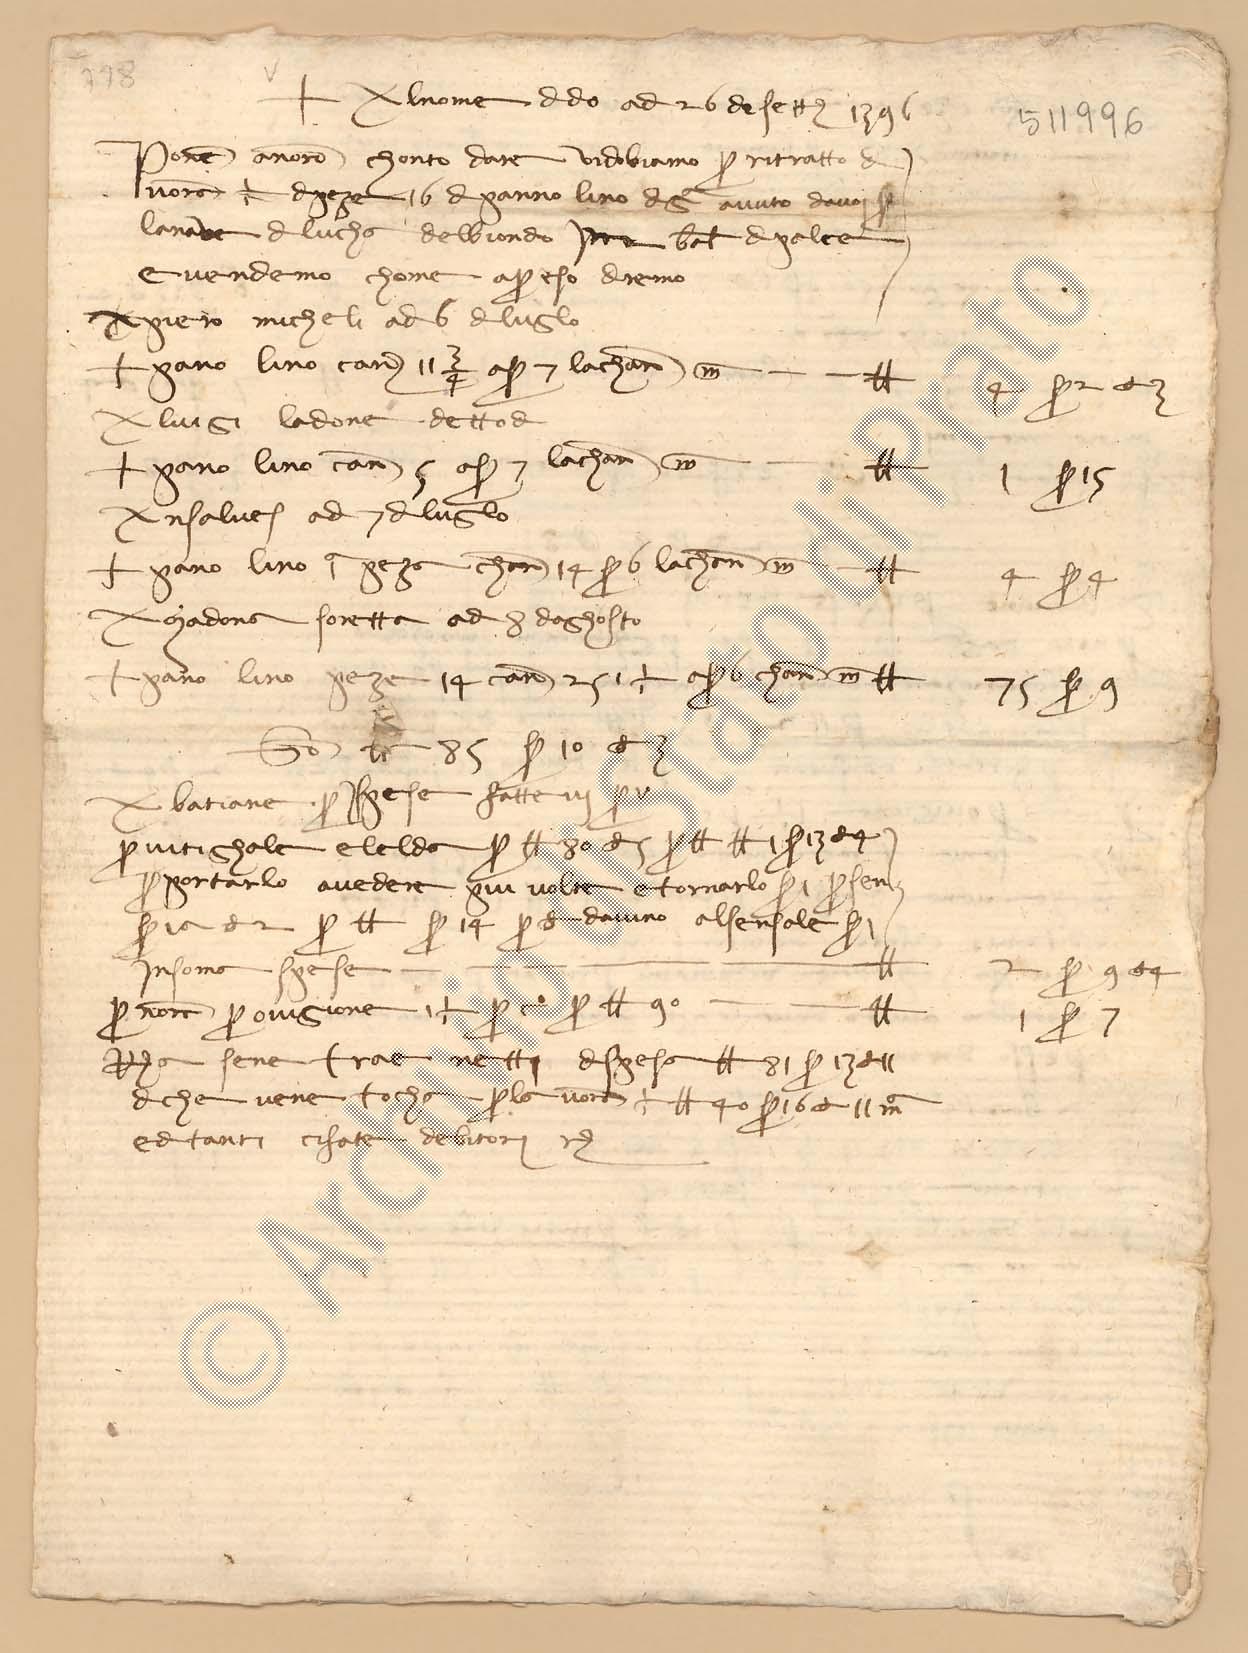 778
511996
+ Al nome d do ad 26 de sett 1396
Pone a noro chonto dare vi dobiamo p ritratto d
vora ½ d peze 16 d panno lino d G auuto da voi p
la naue d lucha del biondo bat d palce
e vendemo chome apreso diremo
A piero micheli ad 6 d luglo
+ pano lino can 11 3/4 a s 7 la chan m — ₶ 4 s 2 d 3
A luigi ladone detto d
+ pano lino can 5 a s 7 la chan m — ₶ 1 s 15
A nsalues ad 7 d luglo
+ pano lino 1 peza chan 14 s 6 la chan m — ₶ 4 s 4
A madona soretta ad 8 daghosto
+ pano lino peze 14 can 251 ½ a s 6 chan m ₶ 75 s 9
So ₶ 85 s 10 d 3
A batiane p spese fatte vi p v
p vitighale e lelda p ₶ 80 d 5 p ₶ ₶ 1 s 13 d 4
p portarlo a vedere piu volte e tornarlo s 1 p sen
s d 2 p ₶ s 14 p d da vino al sensale s 1
In soma spese — ₶ 2 s 9 d 4
p nora provigione 1 ½ p c° p ₶ 90 — ₶ 1 s 7
sene trae netti d spesa ₶ 81 s 13 d 11
d che vene tocha p la vora ½ ₶ 40 s 16 d 11 m
e d tanti ci fate debitori
© Archivio di Stato di Prato